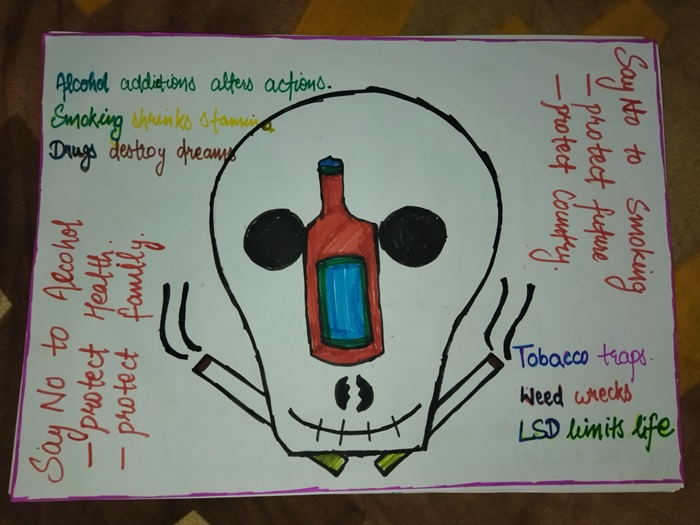 Alcohol addictions alters actions.
Smoking shrinks stamina
Drugs destroy dreams
Say No to Smoking
— protect future
— protect Country.
Say No to Alcohol
— protect Health.
— protect family.
Tobacco traps.
Weed wrecks
LSD limits life